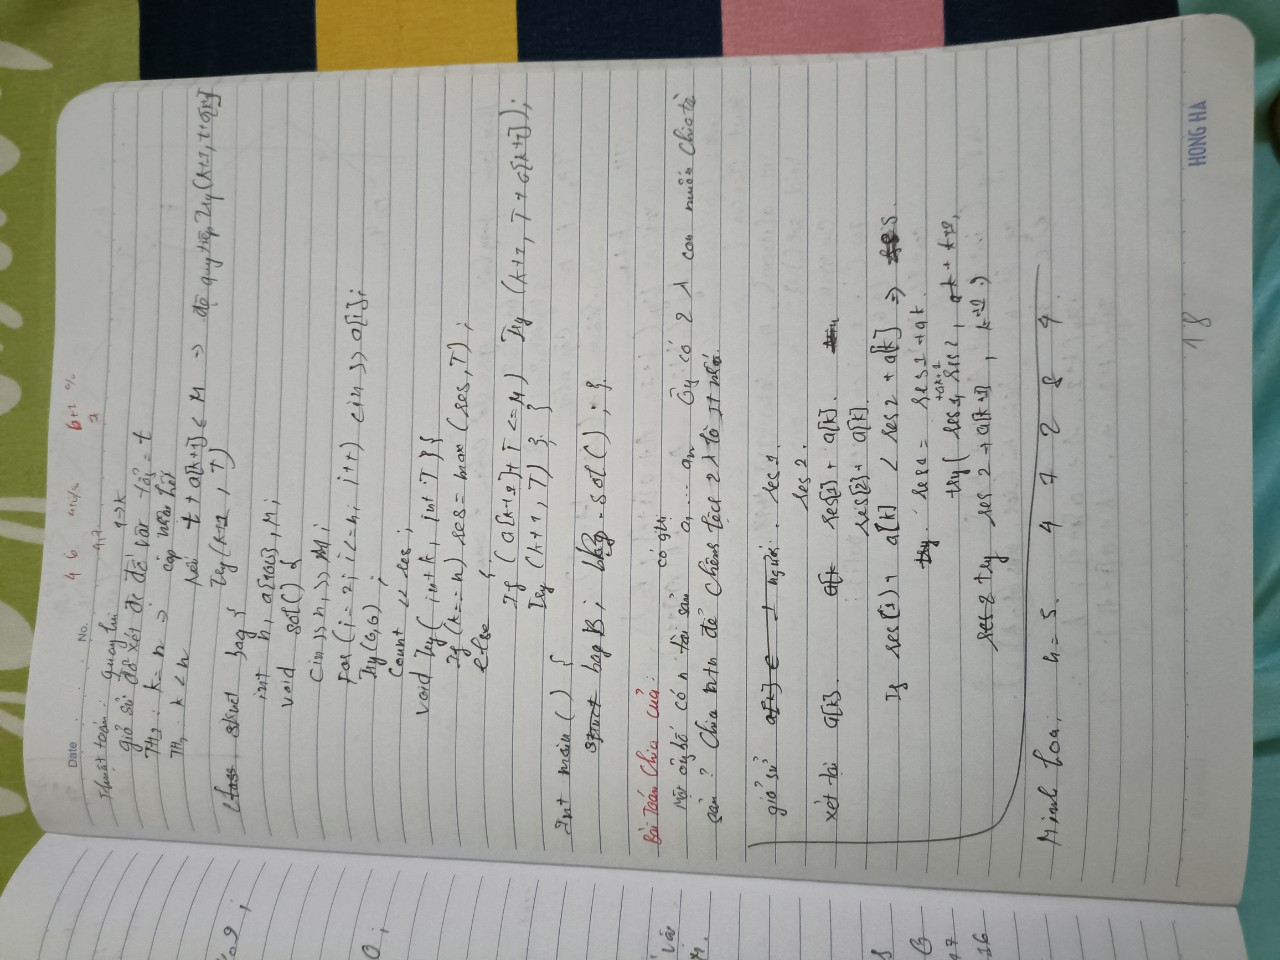 Date
No.
4 6
6+1 %
4,7
7
Thuật toán: quay lui
1->k
giả sử đã xét đc đồ vật tổng = t
TH1: k = n => cập nhật
TH2: k < n
t + a[k+1] < M => đệ quy tiếp Try(k+1, t+a[k+1]
Try(k+1, T)
class struct bag {
int n, a[100], M;
void sol() {
cin >> n, >> M;
For (i=1; i<=n; i++) cin >> a[i];
Try(0,0);
Count << res;
void Try( int k, int T ) {
If (k==n) res = max (res,T);
else {
If (a[k+1]+T <= M) Try (k+1, T+a[k+1]);
Try (k+1, T) }; }
Int main () {
struct bag B; B.sol(); }
Bài Toán Chia của:
có giá trị
Một ông bố có n tài sản a1 ... an Ông có 2 con muốn chia tài
sản? Chia ntn để chênh lệch 2 là ít nhất.
giả sử a[k] € 1 người. res 1.
res 2.
xét tại a[k]. a[k res[1] + a[k].
res[2] + a[k].
If res[1] + a[k] < res2 + a[k] =>
try res1 = res1 + ak
+ak+1
try( res1, res2, k+1,
res 2 try res 2 + a[k+1], k+1 )
Minh họa: n = 5. 4 7 2 8 4
18
HONG HA
0;
6
47
16